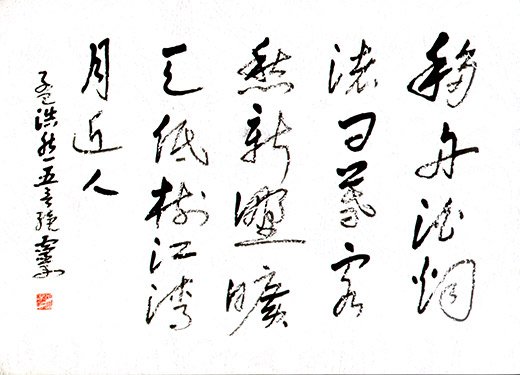 移舟泊烟
渚日暮客
愁新野曠
天低树江清
月近人
孟浩然五言绝